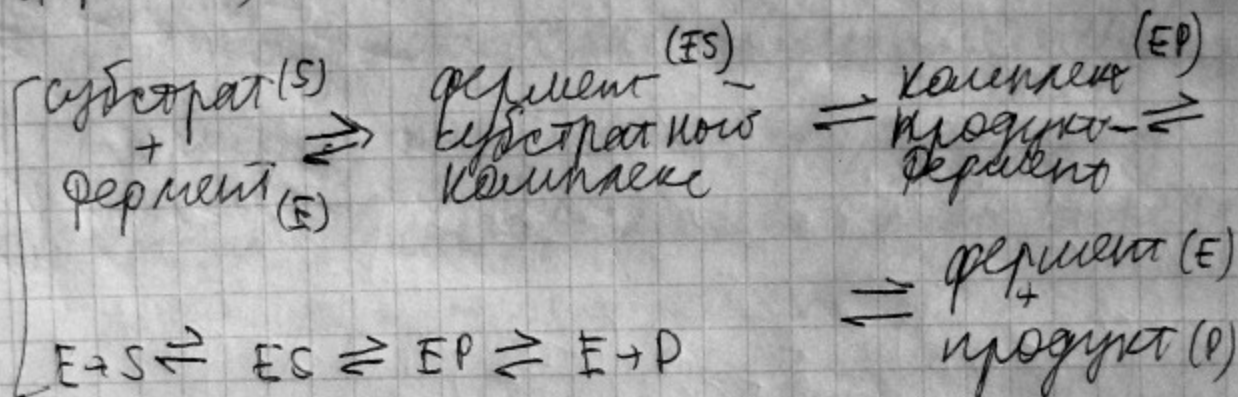 субстрат (S)
+
фермент (E)
⇌
фермент (ES) –
субстратного
комплекс
⇌
комплекс (EP)
продукт –
фермент
⇌
⇌
фермент (E)
+
продукт (P)
E+S ⇌ ES ⇌ EP ⇌ E+P